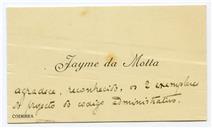 Jayme da Motta
agradece, reconhecido, os 2 exemplares
do projecto de codigo administrativo.
COIMBRA